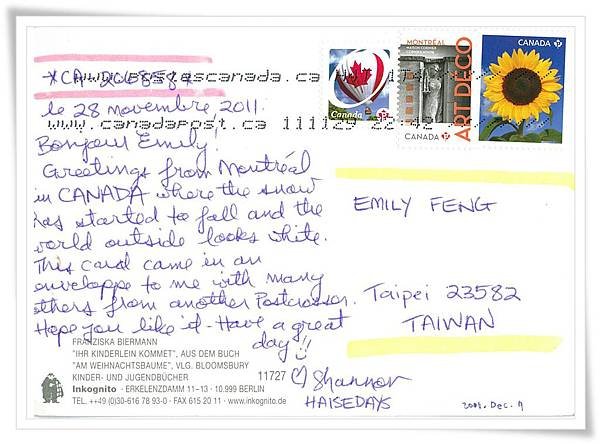 *CA-206858*
www.postescanada.ca
le 28 novembre 2011.
www.canadapost.ca 111129 22:42
Bonjour Emily!
Greetings from Montréal
in CANADA where the snow
has started to fall and the
world outside looks white.
This card came in an
enveloppe to me with many
others from another Postcrosser.
Hope you like it. Have a great
day!!
Shannon
HAISEDAYS
FRANZISKA BIERMANN
"IHR KINDERLEIN KOMMET", AUS DEM BUCH
"AM WEIHNACHTSBAUME", VLG. BLOOMSBURY
KINDER- UND JUGENDBÜCHER
11727
Inkognito · ERKELENZDAMM 11–13 · 10.999 BERLIN
TEL. ++49 (0)30-616 78 93-0 · FAX 615 20 11 · www.inkognito.de
Canada P
MONTRÉAL
ART DÉCO
CANADA P
CANADA P
EMILY FENG
Taipei 23582
TAIWAN
Dec. 9